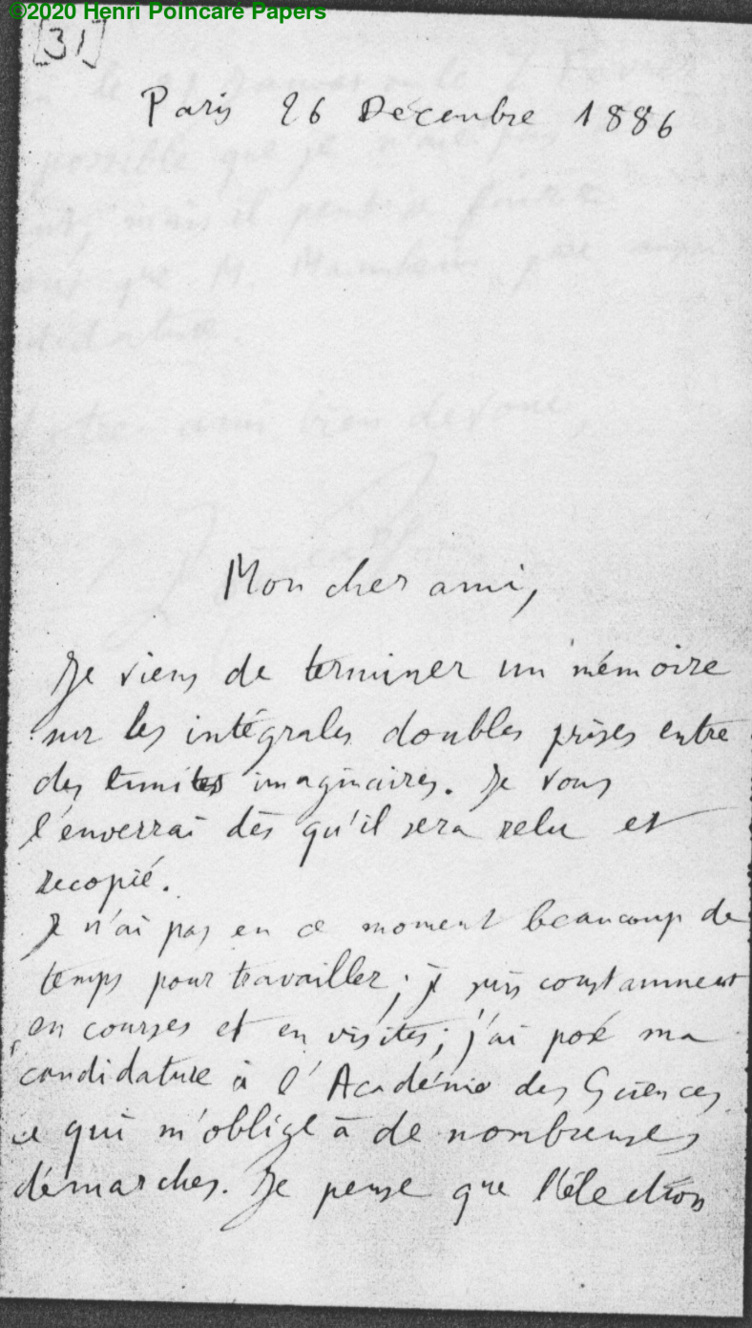 ©2020 Henri Poincaré Papers
[31]
Paris 26 Décembre 1886
Mon cher ami,
Je viens de terminer un mémoire
sur les intégrales doubles prises entre
des limites imaginaires. Je vous
l'enverrai dès qu'il sera relu et
recopié.
Je n'ai pas en ce moment beaucoup de
temps pour travailler ; je suis constamment
en courses et en visites ; j'ai posé ma
candidature à l'Académie des Sciences
ce qui m'oblige à de nombreuses
démarches. Je pense que l'élection